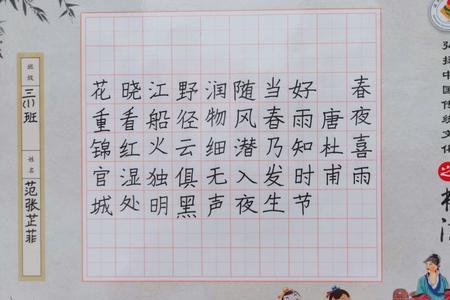 弘扬中国传统文化
之
春夜喜雨
唐杜甫
好雨知时节
当春乃发生
随风潜入夜
润物细无声
野径云俱黑
江船火独明
晓看红湿处
花重锦官城
班级
三(1)班
姓名
范张芷菲